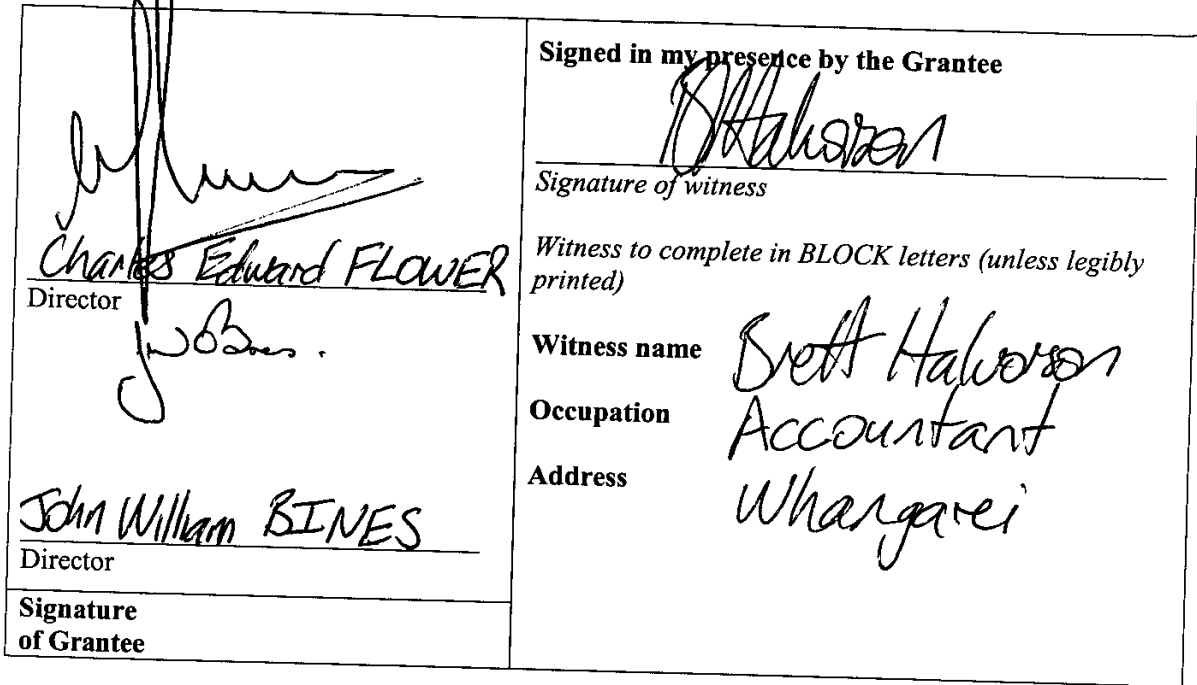 Charles Edward FLOWER
Director
John William BINES
Director
Signature
of Grantee
Signed in my presence by the Grantee
BHalvorson
Signature of witness
Witness to complete in BLOCK letters (unless legibly
printed)
Witness name Brett Halvorson
Occupation Accountant
Address Whangarei